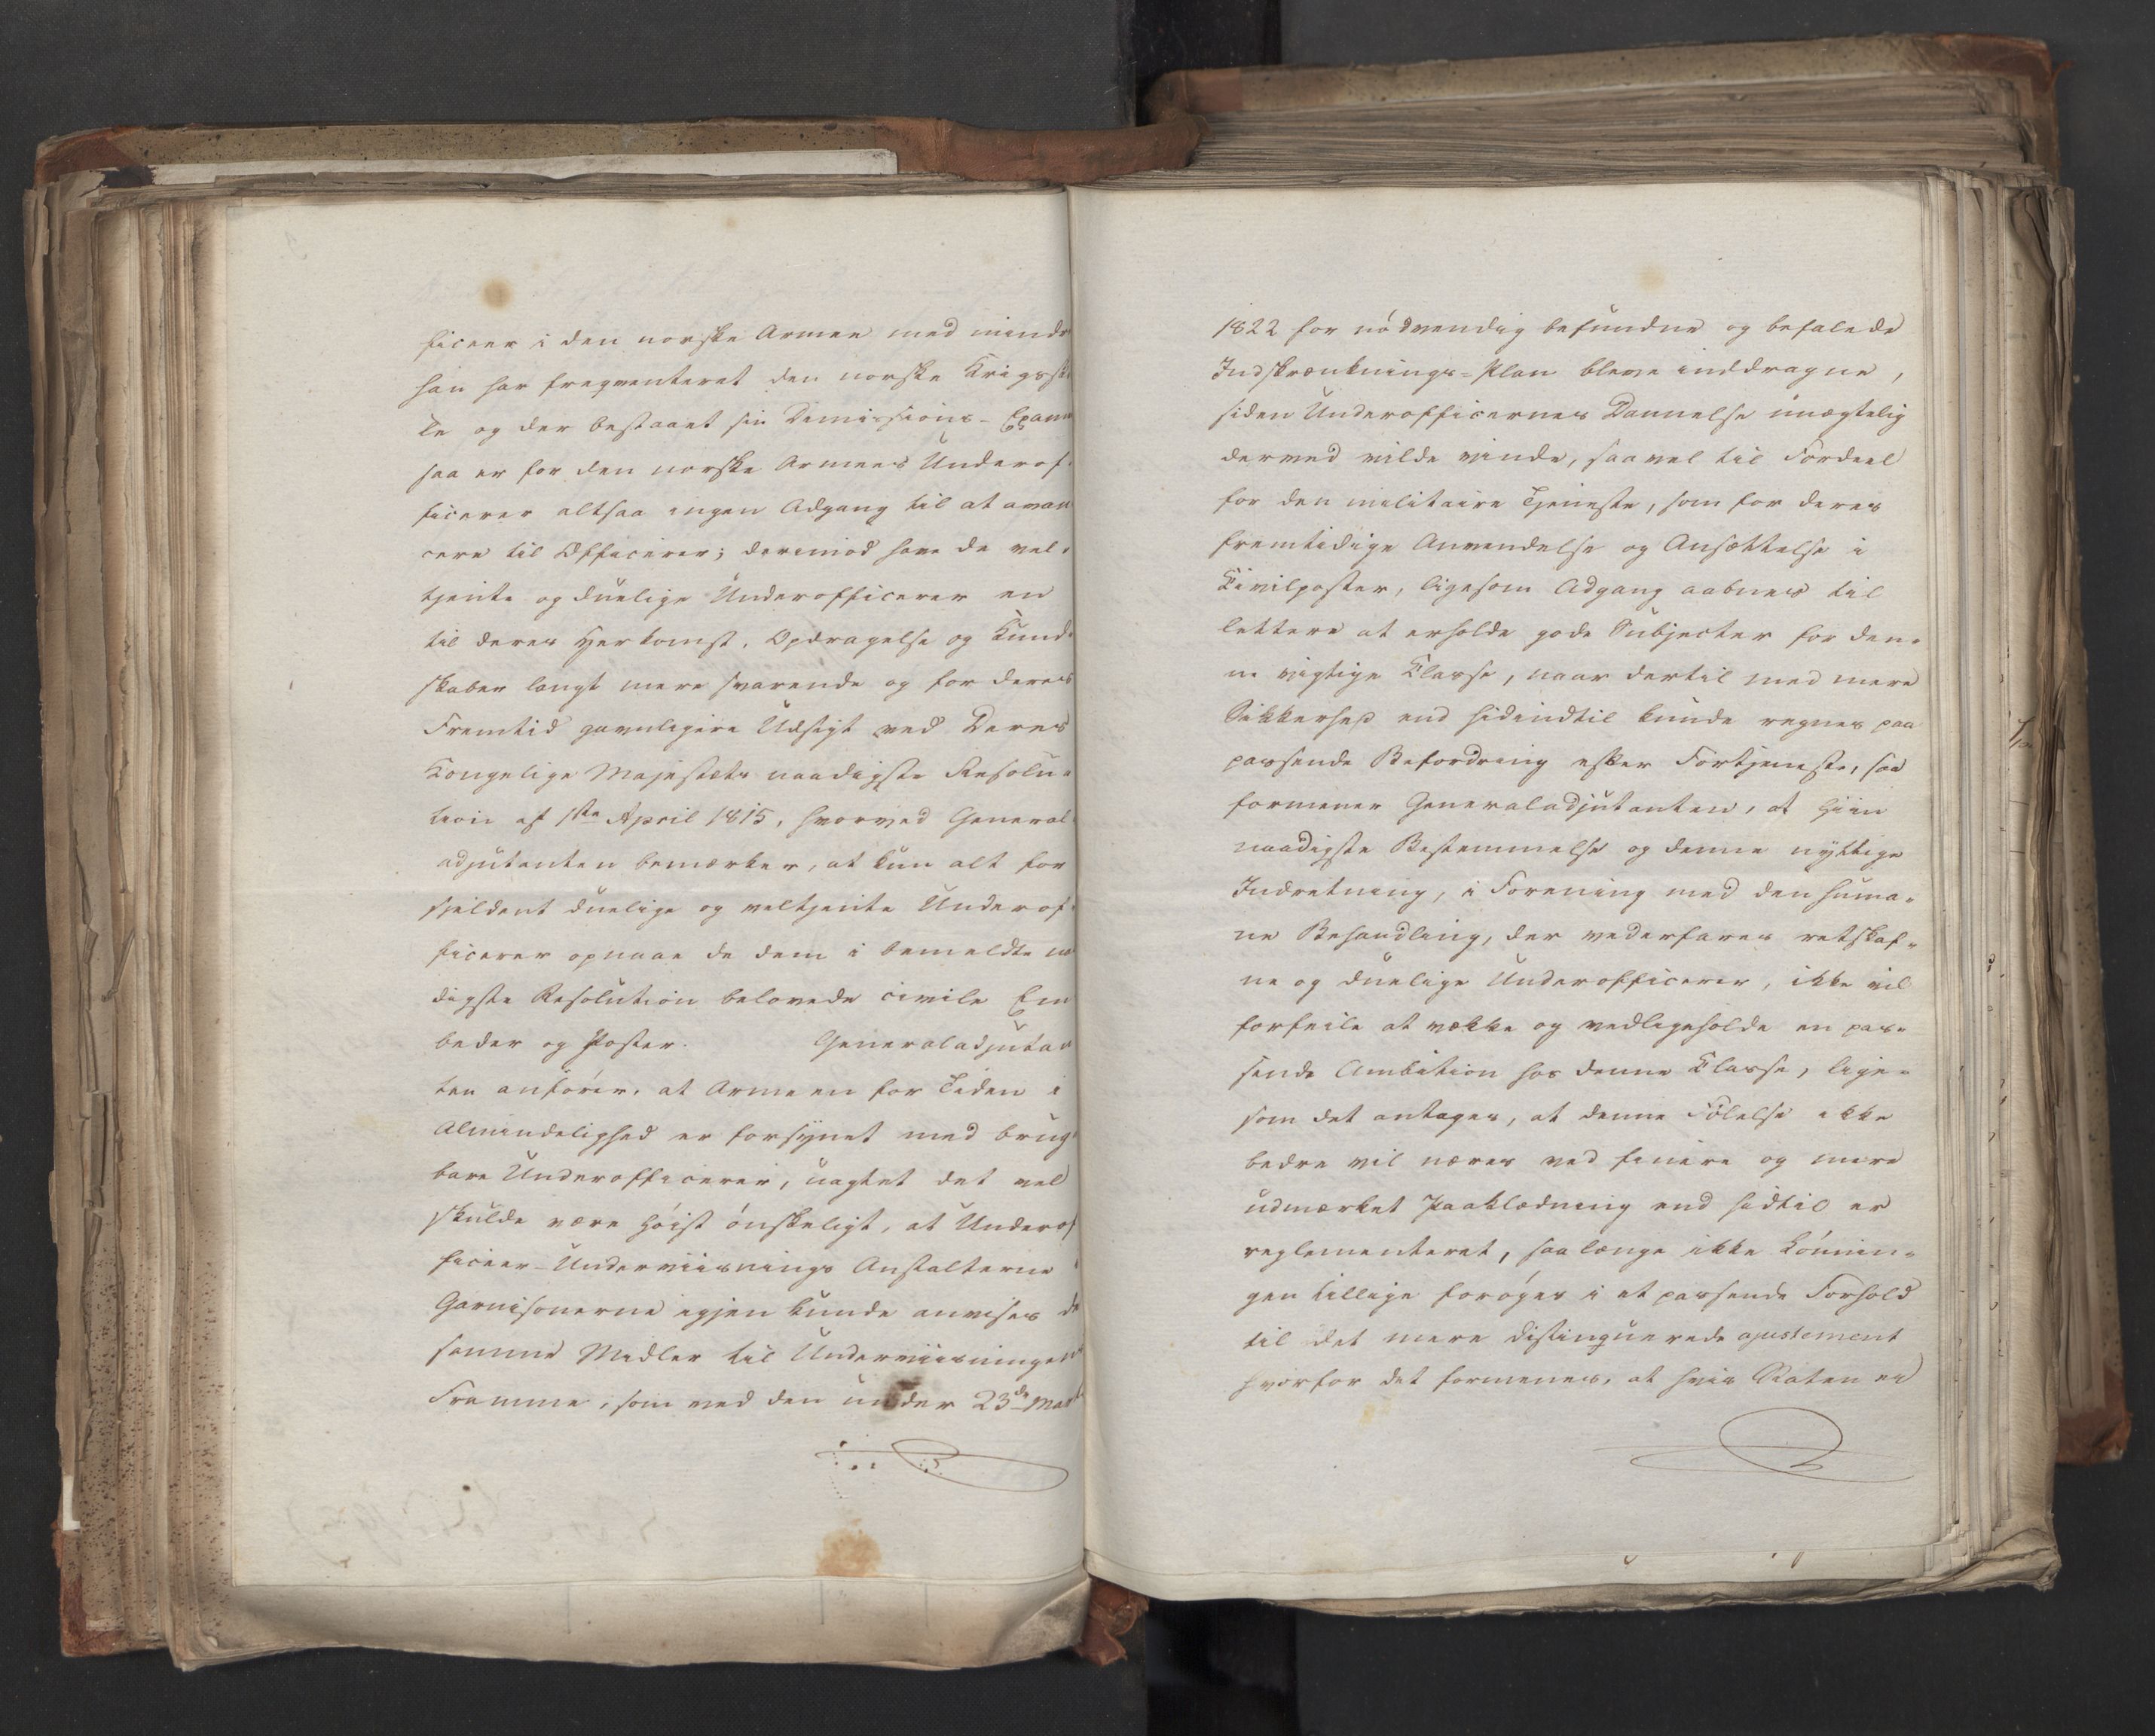 ficeer i den norske Armee med mindre
han har freqventeret den norske Krigssko
le og der bestaaet sin Dimissions-Exam
saa er for den norske Armees Underof-
ficerer altsaa ingen Adgang til at avan
cere til Officerer; derimod have de vel-
tjente og duelige Underofficerer en
til deres Herkomst, Opdragelse og Kund-
skaber langt mere svarende og for deres
Fremtid gavnligere Udsigt ved Deres
Kongelige Majestæts naadigste Resolu-
tion af 1ste April 1815, hvorved General-
adjutanten bemærker, at kun alt for
sjeldent duelige og veltjente Underof-
ficerer opnaae de dem i bemeldte na
digste Resolution belovede civile Em
beder og Poster. Generaladjutan
ten anfører, at Armeen for Tiden i
Almindelighed er forsynet med brug-
bare Underofficerer, uagtet det vel
skulde være høist ønskeligt, at Underof
ficeer-Underviisnings Anstalterne i
Garnisonerne igjen kunde anvises de
samme Midler til Underviisningens
Fremme, som ved den under 23de Marts
1822 for nødvendig befundne og befalede
Indskrænknings-Plan bleve inddragne,
siden Underofficernes Dannelse unægtelig
derved vilde vinde, saavel til Fordeel
for den militaire Tjeneste, som for deres
fremtidige Anvendelse og Ansættelse i
Civilposter, ligesom Adgang aabnes til
lettere at erholde gode Subjecter for den-
ne vigtige Classe, naar dertil med mere
Sikkerhed end hidindtil kunde regnes paa
passende Befordring efter Fortjeneste, saa
formener Generaladjutanten, at hiin
naadigste Bestemmelse og denne nyttige
Indretning, i Forening med den huma-
ne Behandling, der vederfares retskaf-
ne og duelige Underofficerer, ikke vil
forfeile at vække og vedligeholde en pas-
sende Ambition hos denne Classe, lige-
som det antages, at denne Følelse ikke
bedre vil næres ved finere og mere
udmærket Paaklædning end hidtil er
reglementeret, saalænge ikke Lønnin-
gen tillige forøges i et passende Forhold
til det mere distinguerede ajustement
hvorfor det formenes, at hvis Staten er